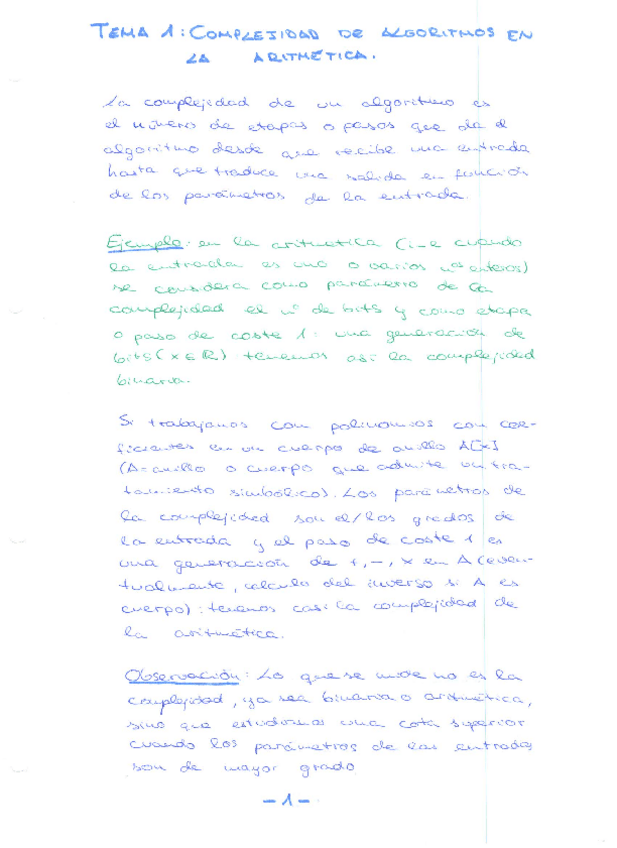 TEMA 1: COMPLEJIDAD DE ALGORITMOS EN
LA ARITMÉTICA.
La complejidad de un algoritmo es
el número de etapas o pasos que da el
algoritmo desde que recibe una entrada
hasta que traduce una salida en función
de los parámetros de la entrada.
Ejemplo: en la aritmética (i-e cuando
la entrada es uno o varios nos enteros)
se considera como parámetro de la
complejidad el nº de bits y como etapa
o paso de coste 1: una generación de
bits (x ∈ R) tenemos así la complejidad
binaria.
Si trabajamos con polinomios con coe-
ficientes en un cuerpo de anillo A[x]
(A = anillo o cuerpo que admite un tra-
tamiento simbólico). Los parámetros de
la complejidad son el/los grados de
la entrada y el paso de coste 1 es
una generación de +, -, x en A (even-
tualmente, calculo del inverso si A es
cuerpo): tenemos casi la complejidad de
la aritmética.
Observación: Lo que se mide no es la
complejidad, ya sea binaria o aritmética,
sino que estudiamos una cota superior
cuando los parámetros de las entradas
son de mayor grado
- 1 -